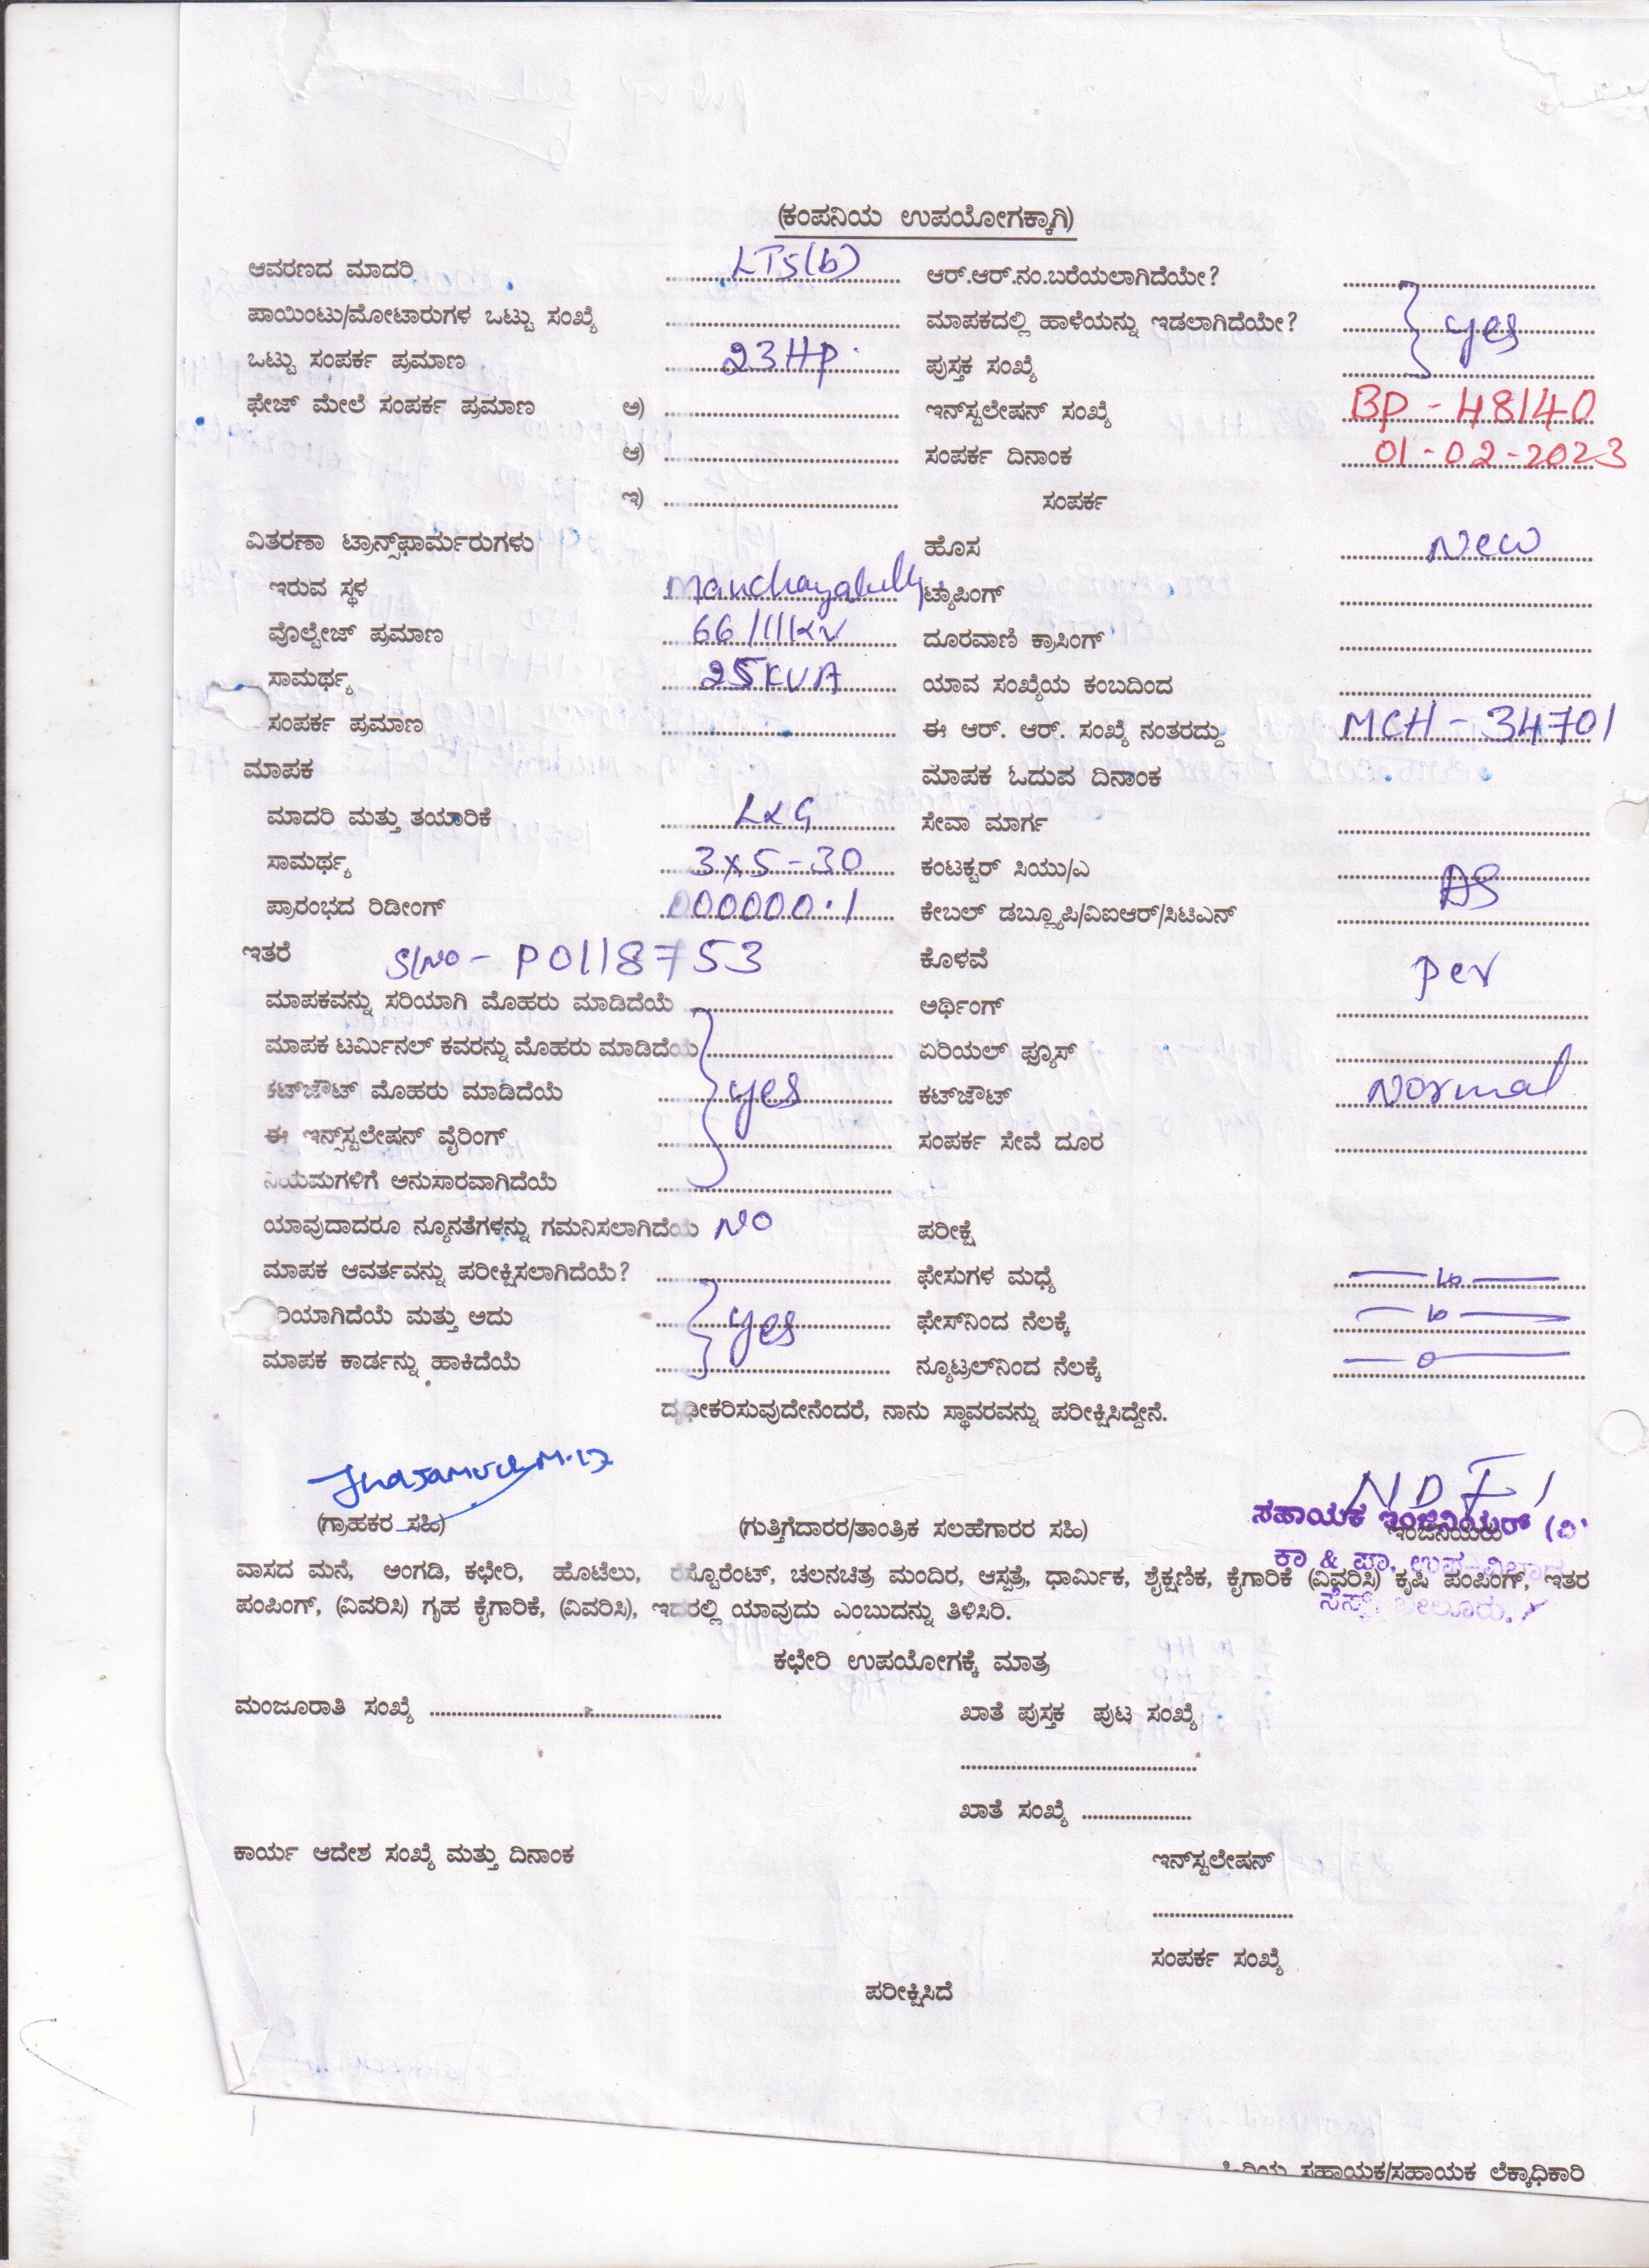 (ಕಂಪನಿಯ ಉಪಯೋಗಕ್ಕಾಗಿ)
ಆವರಣದ ಮಾದರಿ LT5(b) ಆರ್.ಆರ್.ನಂ.ಬರೆಯಲಾಗಿದೆಯೇ?
ಪಾಯಿಂಟು/ಮೋಟಾರುಗಳ ಒಟ್ಟು ಸಂಖ್ಯೆ ಮಾಪಕದಲ್ಲಿ ಹಾಳೆಯನ್ನು ಇಡಲಾಗಿದೆಯೇ? yes
ಒಟ್ಟು ಸಂಪರ್ಕ ಪ್ರಮಾಣ 23HP ಪುಸ್ತಕ ಸಂಖ್ಯೆ
ಫೇಜ್ ಮೇಲೆ ಸಂಪರ್ಕ ಪ್ರಮಾಣ ಅ) ಇನ್‌ಸ್ಟಲೇಷನ್ ಸಂಖ್ಯೆ BP - 48140
ಆ) ಸಂಪರ್ಕ ದಿನಾಂಕ 01-02-2023
ಇ) ಸಂಪರ್ಕ
ವಿತರಣಾ ಟ್ರಾನ್ಸ್‌ಫಾರ್ಮರುಗಳು ಹೊಸ New
ಇರುವ ಸ್ಥಳ ಟ್ಯಾಪಿಂಗ್
ವೊಲ್ಟೇಜ್ ಪ್ರಮಾಣ 66/11KV ದೂರವಾಣಿ ಕ್ರಾಸಿಂಗ್
ಸಾಮರ್ಥ್ಯ 25KVA ಯಾವ ಸಂಖ್ಯೆಯ ಕಂಬದಿಂದ
ಸಂಪರ್ಕ ಪ್ರಮಾಣ ಈ ಆರ್. ಆರ್. ಸಂಖ್ಯೆ ನಂತರದ್ದು MCH - 34701
ಮಾಪಕ ಮಾಪಕ ಓದುವ ದಿನಾಂಕ
ಮಾದರಿ ಮತ್ತು ತಯಾರಿಕೆ L&G ಸೇವಾ ಮಾರ್ಗ
ಸಾಮರ್ಥ್ಯ 3x5-30 ಕಂಟಕ್ಟರ್ ಸಿಯು/ಎ
ಪ್ರಾರಂಭದ ರಿಡೀಂಗ್ 000000.1 ಕೇಬಲ್ ಡಬ್ಲ್ಯೂಪಿ/ವಿಐಆರ್/ಸಿಟಿಎನ್
ಇತರೆ Sl No - P0118753 ಕೊಳವೆ
ಮಾಪಕವನ್ನು ಸರಿಯಾಗಿ ಮೊಹರು ಮಾಡಿದೆಯೆ ಅರ್ಥಿಂಗ್
ಮಾಪಕ ಟರ್ಮಿನಲ್ ಕವರನ್ನು ಮೊಹರು ಮಾಡಿದೆಯೆ ಏರಿಯಲ್ ಫ್ಯೂಸ್
ಕಟ್‌ಔಟ್ ಮೊಹರು ಮಾಡಿದೆಯೆ yes ಕಟ್‌ಔಟ್ Normal
ಈ ಇನ್‌ಸ್ಟಲೇಷನ್ ವೈರಿಂಗ್ ಸಂಪರ್ಕ ಸೇವೆ ದೂರ
ನಿಯಮಗಳಿಗೆ ಅನುಸಾರವಾಗಿದೆಯೆ
ಯಾವುದಾದರೂ ನ್ಯೂನತೆಗಳನ್ನು ಗಮನಿಸಲಾಗಿದೆಯೆ NO ಪರೀಕ್ಷೆ
ಮಾಪಕ ಆವರ್ತವನ್ನು ಪರೀಕ್ಷಿಸಲಾಗಿದೆಯೆ? ಫೇಸುಗಳ ಮಧ್ಯೆ
ರಿಯಾಗಿದೆಯೆ ಮತ್ತು ಅದು yes ಫೇಸ್‌ನಿಂದ ನೆಲಕ್ಕೆ
ಮಾಪಕ ಕಾರ್ಡನ್ನು ಹಾಕಿದೆಯೆ ನ್ಯೂಟ್ರಲ್‌ನಿಂದ ನೆಲಕ್ಕೆ
ದೃಢೀಕರಿಸುವುದೇನೆಂದರೆ, ನಾನು ಸ್ಥಾವರವನ್ನು ಪರೀಕ್ಷಿಸಿದ್ದೇನೆ.
ಸಹಾಯಕ ಇಂಜಿನಿಯರ್ (ವಿ)
(ಗ್ರಾಹಕರ ಸಹಿ) (ಗುತ್ತಿಗೆದಾರರ/ತಾಂತ್ರಿಕ ಸಲಹೆಗಾರರ ಸಹಿ) ಇಂಜಿನಿಯರು
ಕಾ & ಪಾ. ಉಪ-ವಿಭಾಗ
ವಾಸದ ಮನೆ, ಅಂಗಡಿ, ಕಛೇರಿ, ಹೊಟೆಲು, ರೆಸ್ಟೊರೆಂಟ್, ಚಲನಚಿತ್ರ ಮಂದಿರ, ಆಸ್ಪತ್ರೆ, ಧಾರ್ಮಿಕ, ಶೈಕ್ಷಣಿಕ, ಕೈಗಾರಿಕೆ (ವಿವರಿಸಿ) ಕೃಷಿ ಪಂಪಿಂಗ್, ಇತರ
ಪಂಪಿಂಗ್, (ವಿವರಿಸಿ) ಗೃಹ ಕೈಗಾರಿಕೆ, (ವಿವರಿಸಿ), ಇದರಲ್ಲಿ ಯಾವುದು ಎಂಬುದನ್ನು ತಿಳಿಸಿರಿ.
ಕಛೇರಿ ಉಪಯೋಗಕ್ಕೆ ಮಾತ್ರ
ಮಂಜೂರಾತಿ ಸಂಖ್ಯೆ ಖಾತೆ ಪುಸ್ತಕ ಪುಟ ಸಂಖ್ಯೆ
ಖಾತೆ ಸಂಖ್ಯೆ
ಕಾರ್ಯ ಆದೇಶ ಸಂಖ್ಯೆ ಮತ್ತು ದಿನಾಂಕ ಇನ್‌ಸ್ಟಲೇಷನ್
ಸಂಪರ್ಕ ಸಂಖ್ಯೆ
ಪರೀಕ್ಷಿಸಿದೆ
ಹಿರಿಯ ಸಹಾಯಕ/ಸಹಾಯಕ ಲೆಕ್ಕಾಧಿಕಾರಿ